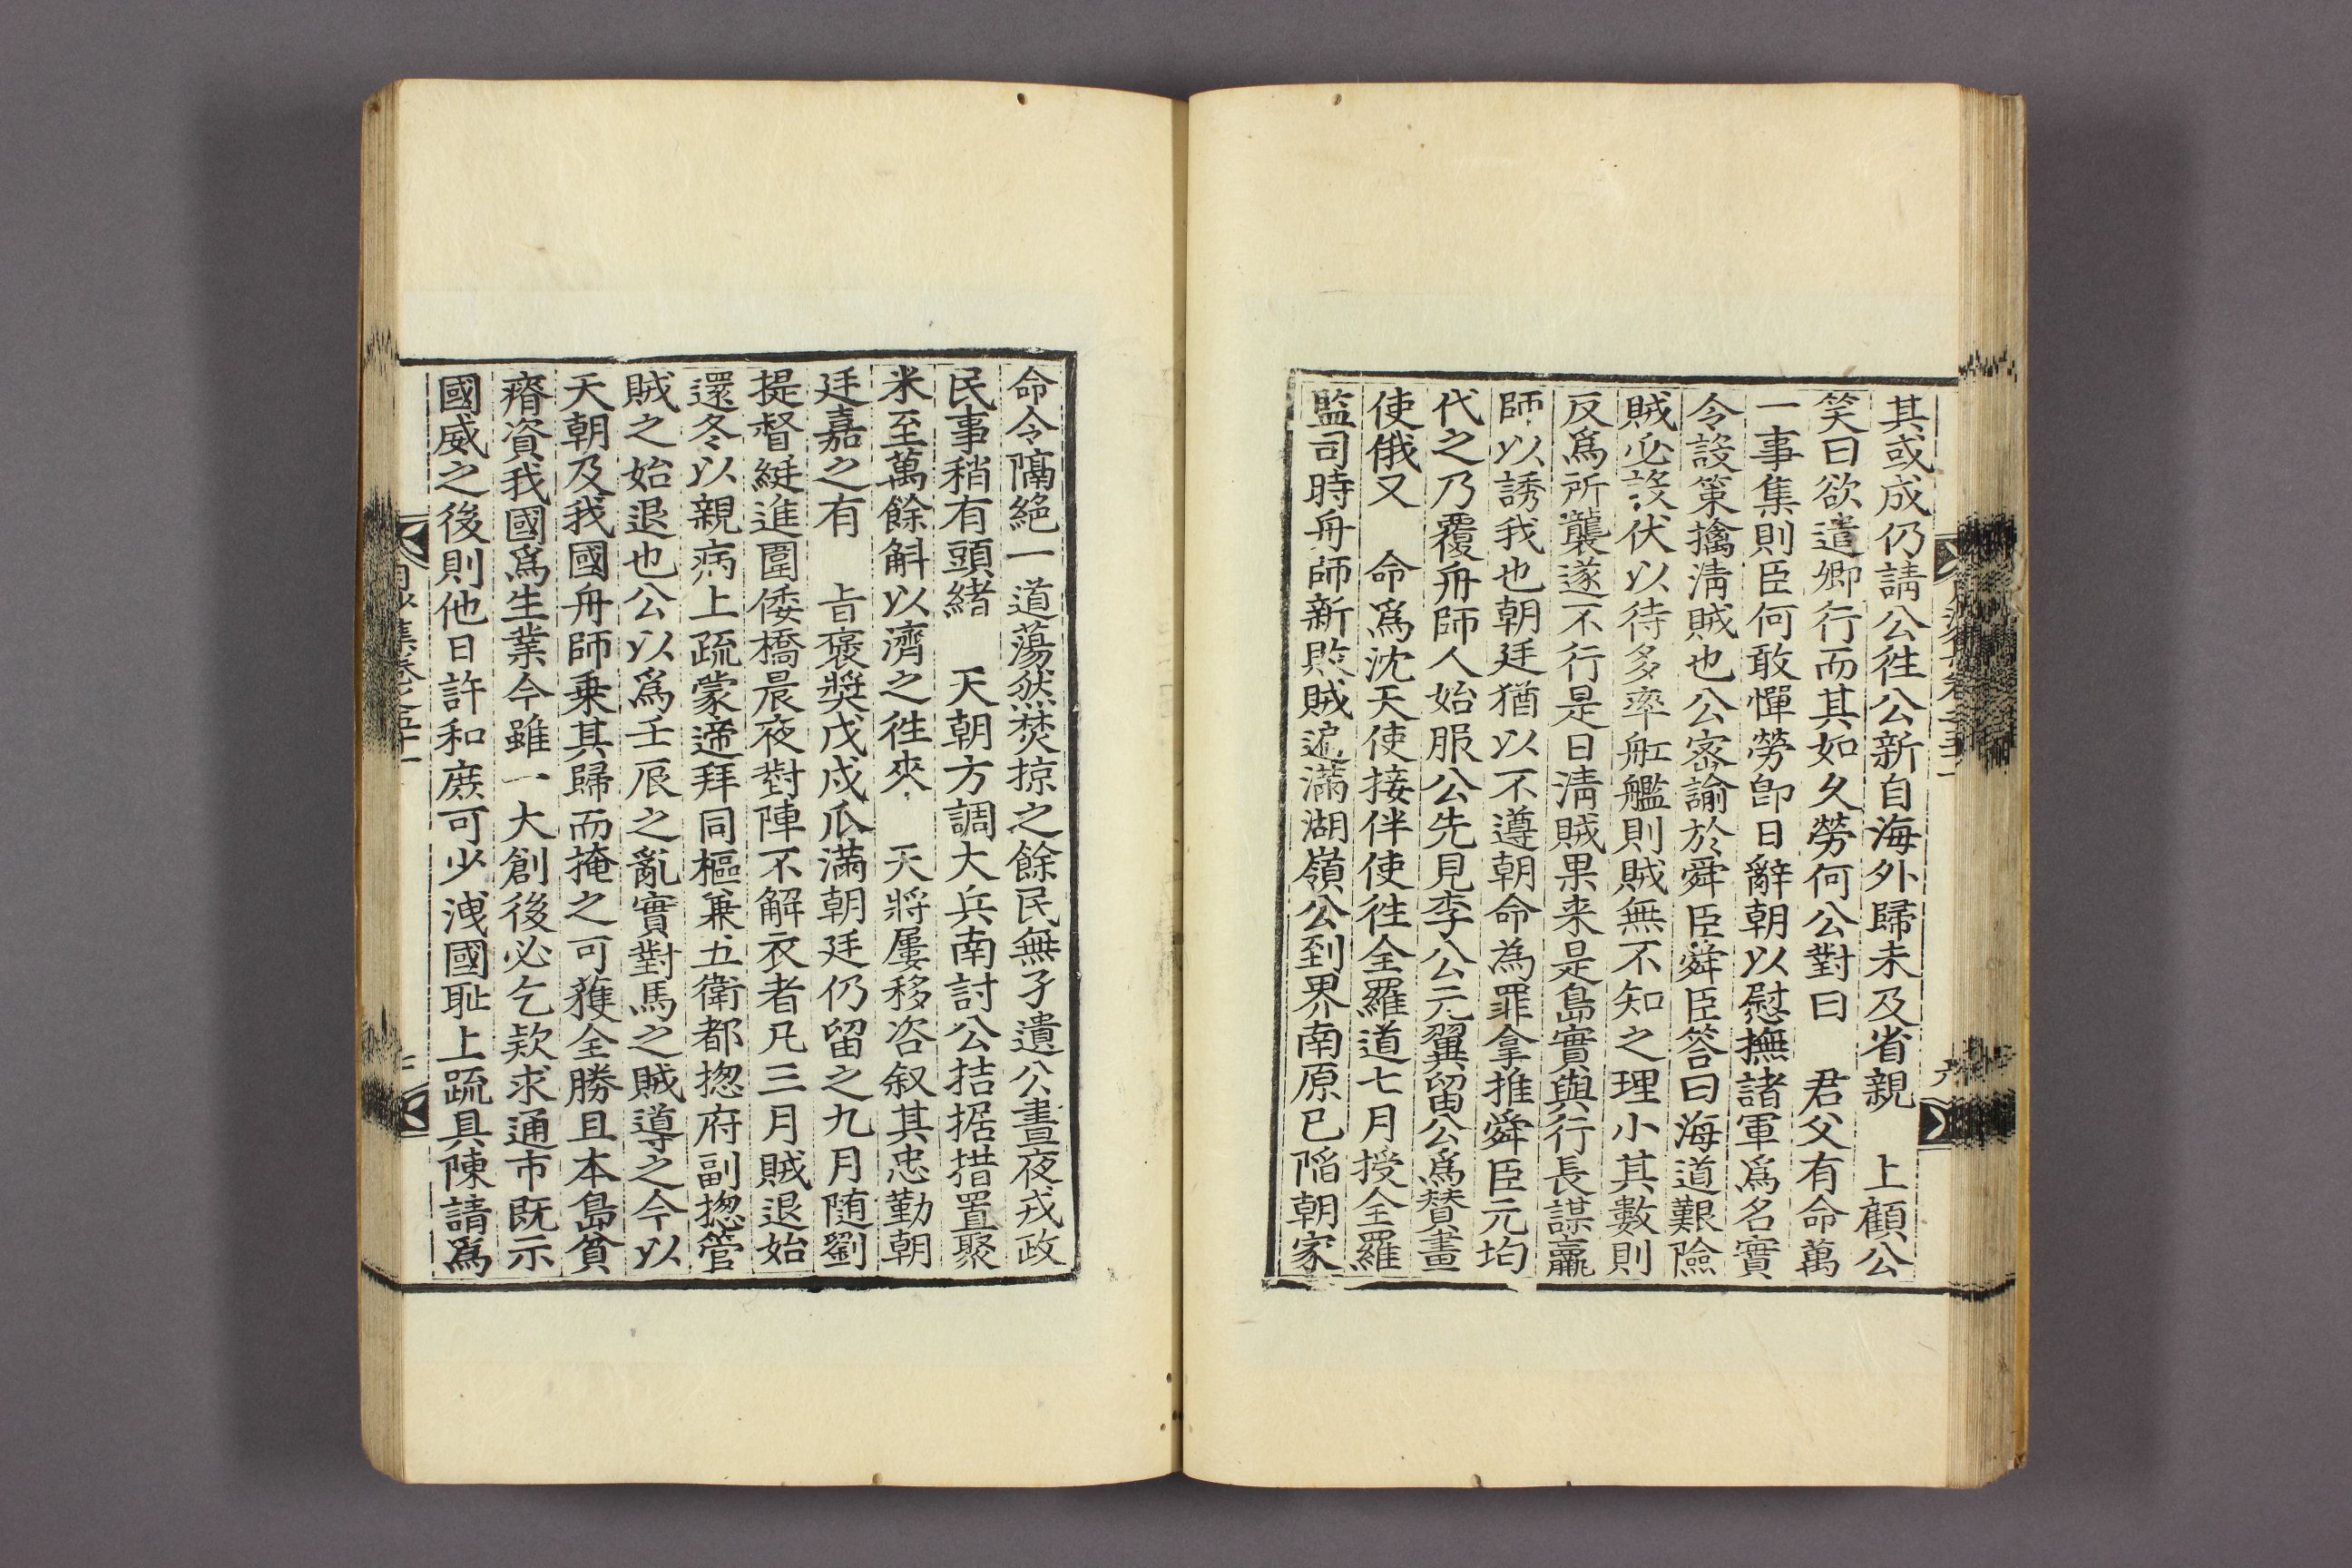 其或成仍請公徃公新自海外歸未及省親　上顧公
笑曰欲遣卿行而其如久勞何公對曰　君父有命萬
一事集則臣何敢憚勞卽日辭朝以慰撫諸軍爲名實
令設策擒淸賊也公密諭於舜臣舜臣答曰海道艱險
賊必設伏以待多率舡艦則賊無不知之理小其數則
反爲所襲遂不行是日淸賊果来是島實與行長謀羸
師以誘我也朝廷猶以不遵朝命為罪拿推舜臣元均
代之乃覆舟師人始服公先見李公元翼留公爲賛畫
使俄又　命爲沈天使接伴使徃全羅道七月授全羅
監司時舟師新敗賊遍滿湖嶺公到界南原已陷朝家
命令隔絕一道蕩然焚掠之餘民無孑遺公晝夜戎政
民事稍有頭緖　天朝方調大兵南討公拮据措置聚
米至萬餘斛以濟之徃來　天將屢移咨叙其忠勤朝
廷嘉之有　旨褒奬戊戌瓜滿朝廷仍留之九月随劉
提督綎進圍倭橋晨夜對陣不解衣者凡三月賊退始
還冬以親病上疏蒙遞拜同樞兼五衛都摠府副摠管
賊之始退也公以爲壬辰之亂實對馬之賊導之今以
天朝及我國舟師乗其歸而掩之可獲全勝且本島貧
瘠資我國爲生業今雖一大創後必乞欵求通市既示
國威之後則他日許和庶可少洩國耻上疏具陳請爲
集卷之五十一